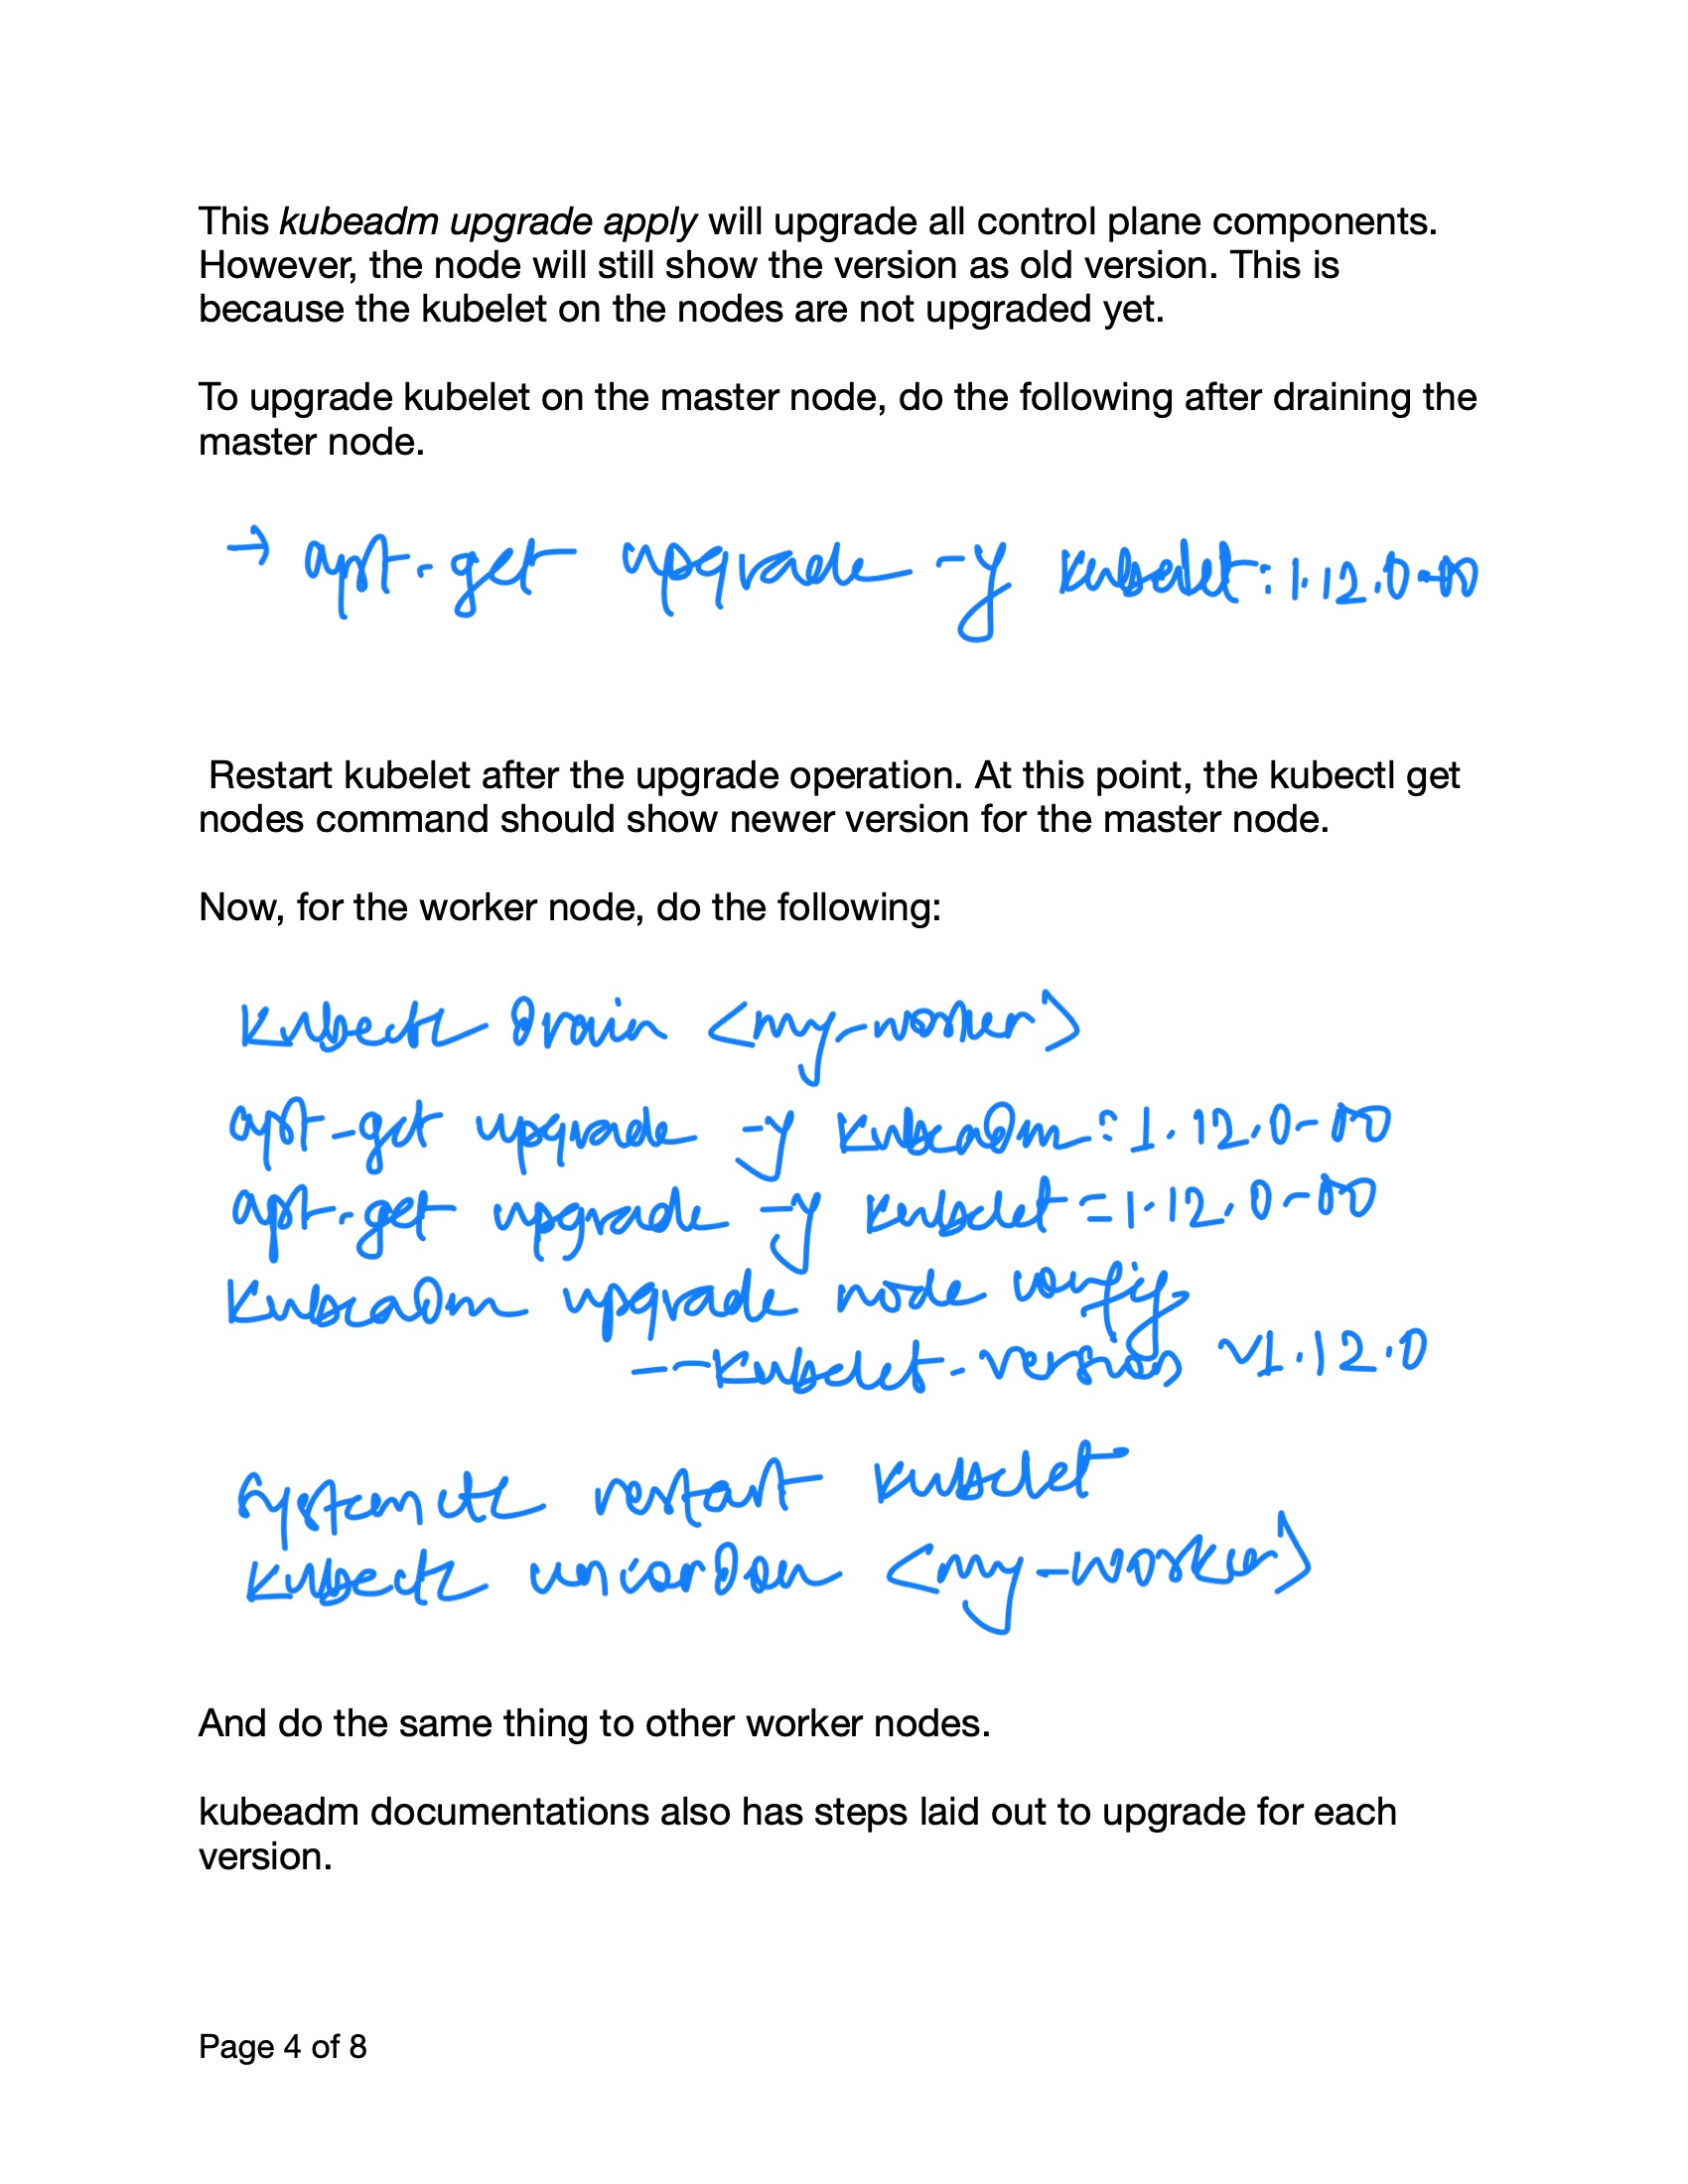 This kubeadm upgrade apply will upgrade all control plane components.
However, the node will still show the version as old version. This is
because the kubelet on the nodes are not upgraded yet.
To upgrade kubelet on the master node, do the following after draining the
master node.
→ apt-get upgrade -y kubelet:1.12.0-00
Restart kubelet after the upgrade operation. At this point, the kubectl get
nodes command should show newer version for the master node.
Now, for the worker node, do the following:
kubectl drain <my-worker>
apt-get upgrade -y kubeadm:1.12.0-00
apt-get upgrade -y kubelet=1.12.0-00
kubeadm upgrade node config
--kubelet-version v1.12.0
systemctl restart kubelet
kubectl uncordon <my-worker>
And do the same thing to other worker nodes.
kubeadm documentations also has steps laid out to upgrade for each
version.
Page 4 of 8